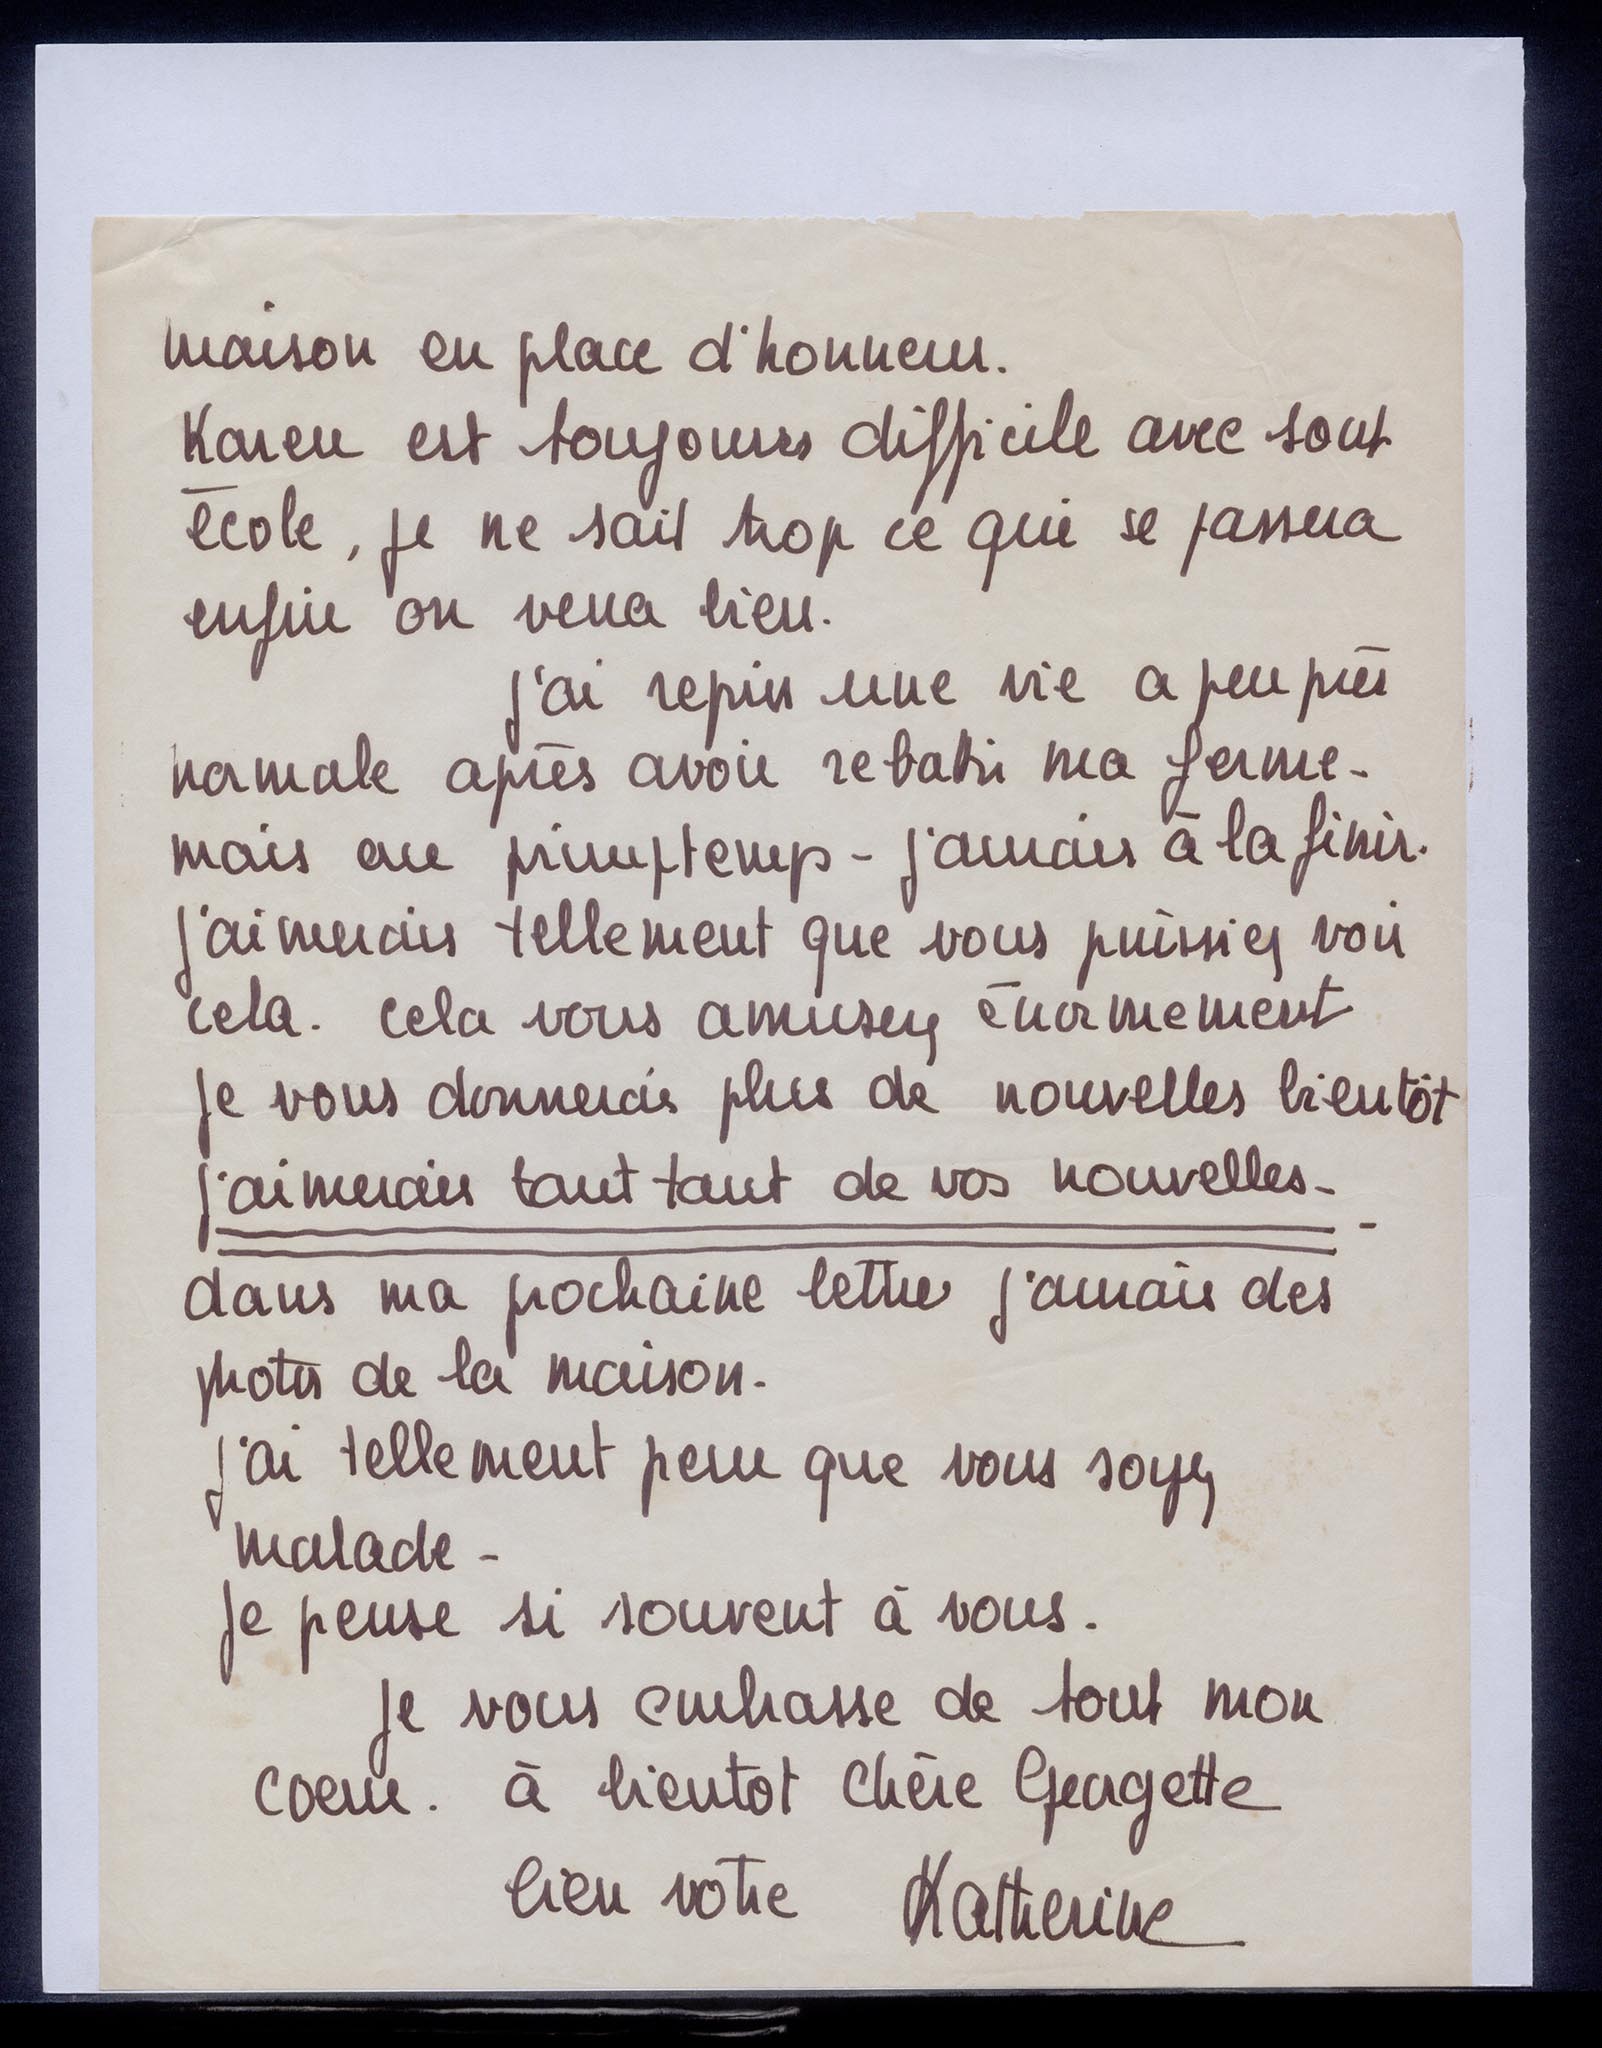 maison en place d'honneur.
Karen est toujours difficile avec sont
école, je ne sait trop ce qui se passera
enfin on verra bien.
j'ai repris une vie a peu près
normale après avoir rebatir ma ferme -
mais au primptemp - j'aurais à la finir.
j'aimerais tellement que vous puissiez voir
cela. cela vous amusez énormement
je vous donnerais plus de nouvelles bientôt
j'aimerais tant tant de vos nouvelles - -
dans ma prochaine lettre j'aurais des
photos de la maison -
j'ai tellement peur que vous soyez
malade -
je pense si souvent à vous.
je vous embrasse de tout mon
coeur. à bientot chère Georgette
bien votre Katherine